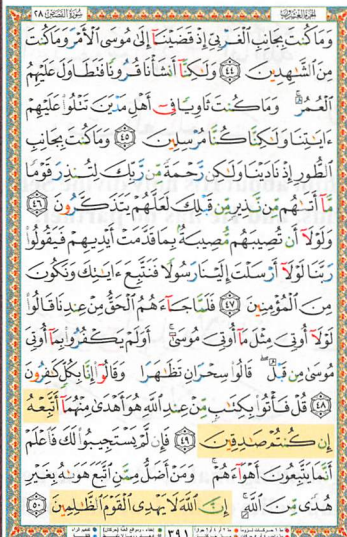 سُورَةُ القَصَصِ ٢٨
وَمَا كُنتَ بِجَانِبِ ٱلْغَرْبِىِّ إِذْ قَضَيْنَآ إِلَىٰ مُوسَى ٱلْأَمْرَ وَمَا كُنتَ
مِنَ ٱلشَّٰهِدِينَ ٤٤ وَلَٰكِنَّآ أَنشَأْنَا قُرُونًا فَتَطَاوَلَ عَلَيْهِمُ
ٱلْعُمُرُ ۚ وَمَا كُنتَ ثَاوِيًا فِىٓ أَهْلِ مَدْيَنَ تَتْلُوا۟ عَلَيْهِمْ
ءَايَٰتِنَا وَلَٰكِنَّا كُنَّا مُرْسِلِينَ ٤٥ وَمَا كُنتَ بِجَانِبِ
ٱلطُّورِ إِذْ نَادَيْنَا وَلَٰكِن رَّحْمَةً مِّن رَّبِّكَ لِتُنذِرَ قَوْمًا
مَّآ أَتَىٰهُم مِّن نَّذِيرٍ مِّن قَبْلِكَ لَعَلَّهُمْ يَتَذَكَّرُونَ ٤٦
وَلَوْلَآ أَن تُصِيبَهُم مُّصِيبَةٌۢ بِمَا قَدَّمَتْ أَيْدِيهِمْ فَيَقُولُوا۟
رَبَّنَا لَوْلَآ أَرْسَلْتَ إِلَيْنَا رَسُولًا فَنَتَّبِعَ ءَايَٰتِكَ وَنَكُونَ
مِنَ ٱلْمُؤْمِنِينَ ٤٧ فَلَمَّا جَآءَهُمُ ٱلْحَقُّ مِنْ عِندِنَا قَالُوا۟
لَوْلَآ أُوتِىَ مِثْلَ مَآ أُوتِىَ مُوسَىٰٓ ۚ أَوَلَمْ يَكْفُرُوا۟ بِمَآ أُوتِىَ
مُوسَىٰ مِن قَبْلُ ۖ قَالُوا۟ سِحْرَانِ تَظَٰهَرَا وَقَالُوٓا۟ إِنَّا بِكُلٍّ كَٰفِرُونَ
٤٨ قُلْ فَأْتُوا۟ بِكِتَٰبٍ مِّنْ عِندِ ٱللَّهِ هُوَ أَهْدَىٰ مِنْهُمَآ أَتَّبِعْهُ
إِن كُنتُمْ صَٰدِقِينَ ٤٩ فَإِن لَّمْ يَسْتَجِيبُوا۟ لَكَ فَٱعْلَمْ
أَنَّمَا يَتَّبِعُونَ أَهْوَآءَهُمْ ۚ وَمَنْ أَضَلُّ مِمَّنِ ٱتَّبَعَ هَوَىٰهُ بِغَيْرِ
هُدًى مِّنَ ٱللَّهِ ۚ إِنَّ ٱللَّهَ لَا يَهْدِى ٱلْقَوْمَ ٱلظَّٰلِمِينَ ٥٠
٣٩١